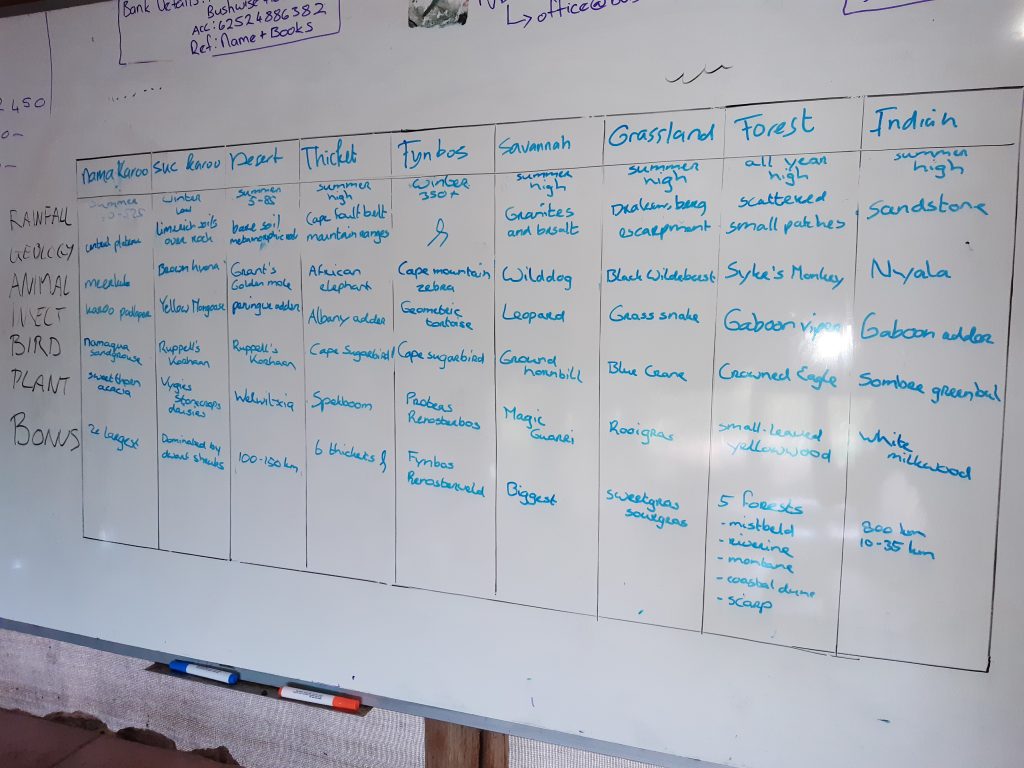 Bank Details:
Bushwise
Acc: 62524886382
Ref: Name + Books
office@bus
2450
Nama Karoo
Suc Karoo
Desert
Thicket
Fynbos
Savannah
Grassland
Forest
Indian
RAINFALL
summer
winter
low
summer
5-85
summer
high
winter
350+
summer
high
summer
high
all year
high
summer
high
GEOLOGY
central plateau
limerich soils
over rock
bare soil
metamorphic rock
Cape fault belt
mountain ranges
Granites
and basalt
escarpment
scattered
small patches
Sandstone
ANIMAL
meerkat
Brown hyena
Grant's
Golden mole
African
elephant
Cape mountain
zebra
Wilddog
Black Wildebeest
Syke's Monkey
Nyala
INSECT
Karoo padloper
Yellow Mongoose
peringue adder
Albany adder
Geometric
tortoise
Leopard
Grass snake
Gaboon viper
Gaboon adder
BIRD
namaqua
sandgrouse
Ruppell's
Korhaan
Ruppell's
Korhaan
Cape Sugarbird
Cape sugarbird
Ground
hornbill
Blue Crane
Crowned Eagle
Sombre greenbul
PLANT
sweet thorn
acacia
Vygies
Stonecrops
daisies
Welwitschia
Spekboom
Proteas
Renosterbos
Magic
Guarri
Rooigras
small-leaved
yellowwood
White
milkwood
BONUS
2e largest
Dominated by
dwarf shrubs
100-150 km
6 thickets
Fynbos
Renosterveld
Biggest
sweetgras
sourgras
5 forests
- mistbeld
- riverine
- montane
- coastal dune
- scarp
800 km
10-35 km